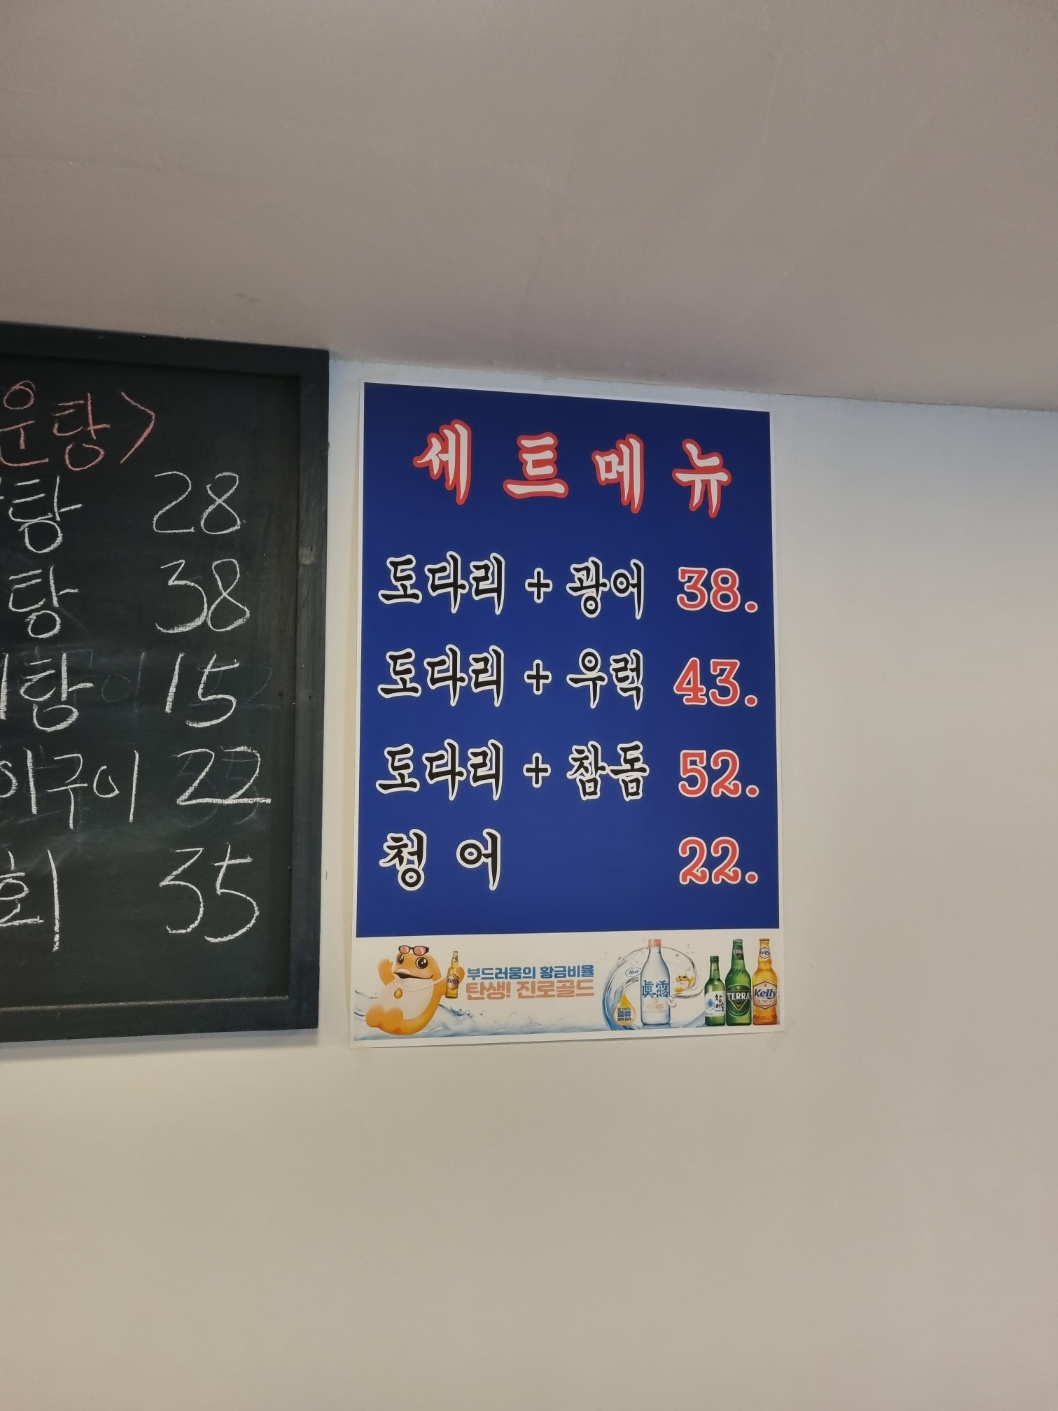 운탕>
탕 28
탕 38
탕 15
구이 22
회 35
세트메뉴
도다리 + 광어 38.
도다리 + 우럭 43.
도다리 + 참돔 52.
청어 22.
부드러움의 황금비율
탄생! 진로골드
眞露
TERRA
Kelly